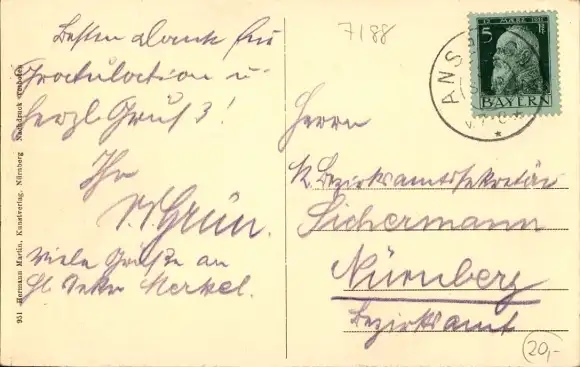 Besten Dank für
Gratulation u.
herzl Gruß!
Ihr
Grün.
Viele Grüße an
H. Sekr. Merkel.
951 Hermann Martin, Kunstverlag, Nürnberg Nachdruck verboten
7188
ANS
12. MÄRZ 1911
5
BAYERN
Herrn
K. Bezirksamtssekretär
Sichermann
Nürnberg
Bezirksamt
20,-